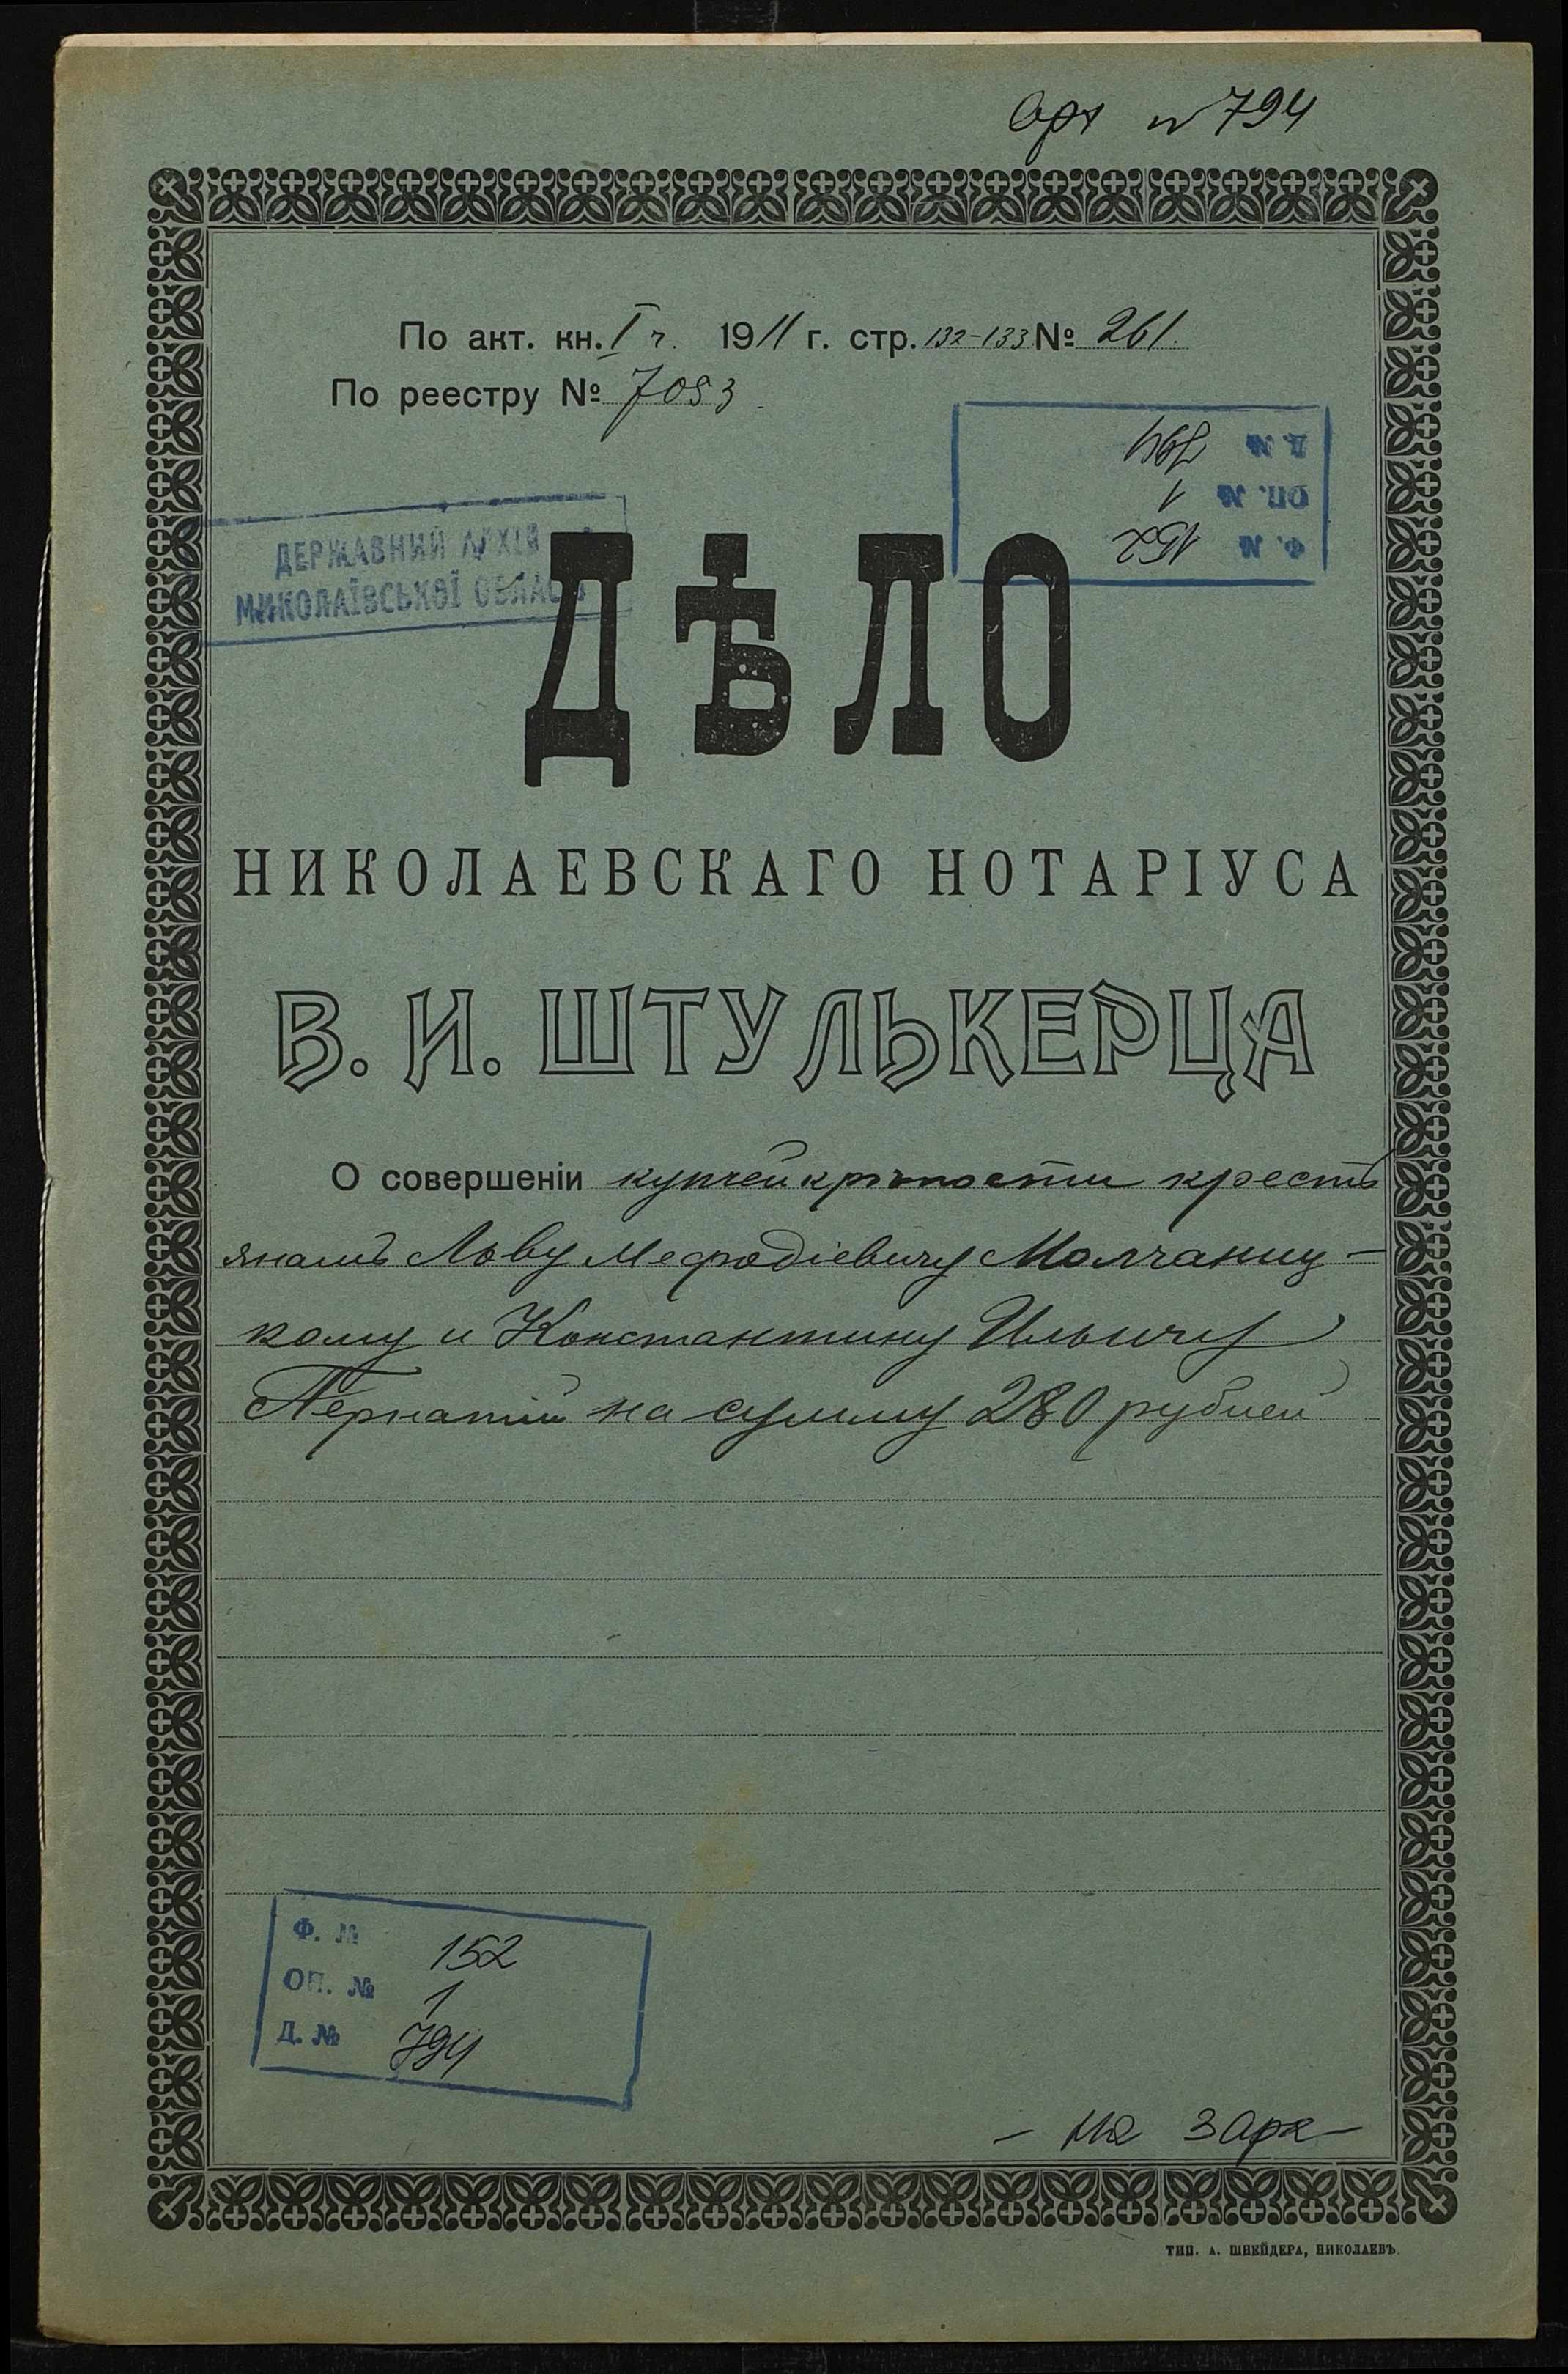 Арх № 794
По акт. кн. I ч. 1911 г. стр. 132-133 № 261.
По реестру № 7053
Д. № 794
ОП. № 1
Ф. № 152
ДЕРЖАВНИЙ АРХІВ
МИКОЛАЇВСЬКОЇ ОБЛАСТІ
ДѢЛО
НИКОЛАЕВСКАГО НОТАРІУСА
В. И. ШТУЛЬКЕРЦА
О совершеніи купчей крѣпости кресть
янамъ Льву Мефодіевичу Молчаниц-
кому и Константину Ильичу
Пернатій на сумму 280 рублей
Ф. № 152
ОП. № 1
Д. № 794
- На 3 арк -
ТИП. А. ШНЕЙДЕРА, НИКОЛАЕВЪ.